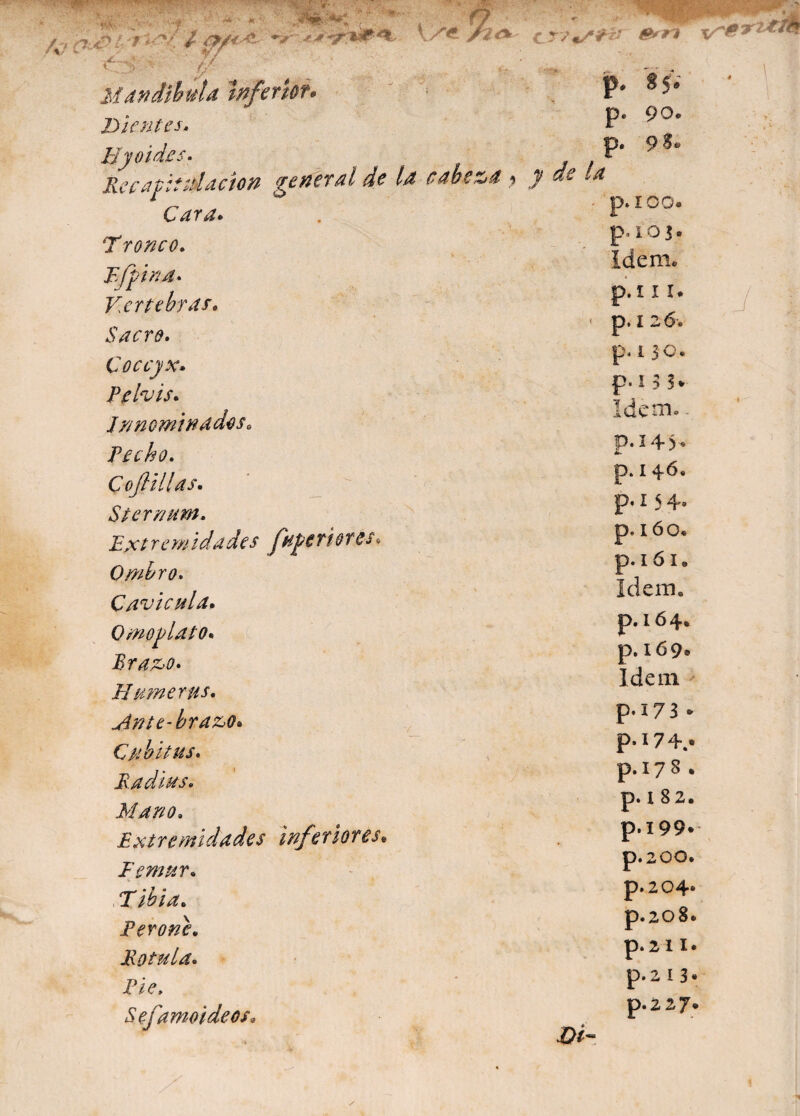 Mandibula inferior. p. 85.
Dientes. p. 90.
Hyoides. p. 98.
Recapitulacion general de la cabeza, y de la
Cara. p.100.
Tronco. p.103.
Eſpina. Idem.
Vertebras. p.111.
Sacro. p.126.
Coccyx. p.130.
Pelvis. p.133.
Innominados. Idem.
Pecho. p.145.
Coſtillas. p.146.
Sternum. p.154.
Extremidades ſuperiores. p.160.
Ombro. p.161.
Cavicula. Idem.
Omoplato. p.164.
Brazo. p.169.
Humerus. Idem
Ante-brazo. p.173.
Cubitus. p.174.
Radius. p.178.
Mano. p.182.
Extremidades inferiores. p.199.
Femur. p.200.
Tibia. p.204.
Peronè. p.208.
Rotula. p.211.
Pie. p.213.
Seſamoideos. p.227.
Di-